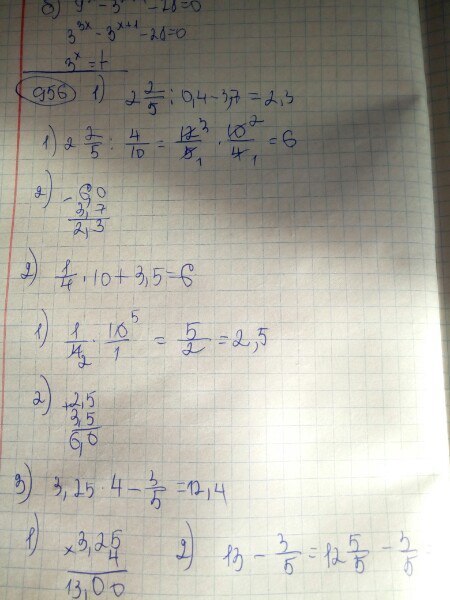 3^{3x} - 3^{x+1} - 28 = 0
3^x = t
956 1) 2 2/5 : 0,4 - 3,7 = 2,3
1) 2 2/5 : 4/10 = 12^3/5_1 · 10^2/4_1 = 6
2) - 6,0
3,7
2,3
2) 1/4 · 10 + 3,5 = 6
1) 1/4_2 · 10^5/1 = 5/2 = 2,5
2) + 2,5
3,5
6,0
3) 3,25 · 4 - 3/5 = 12,4
1) × 3,25
4
13,00
2) 13 - 3/5 = 12 5/5 - 3/5 =